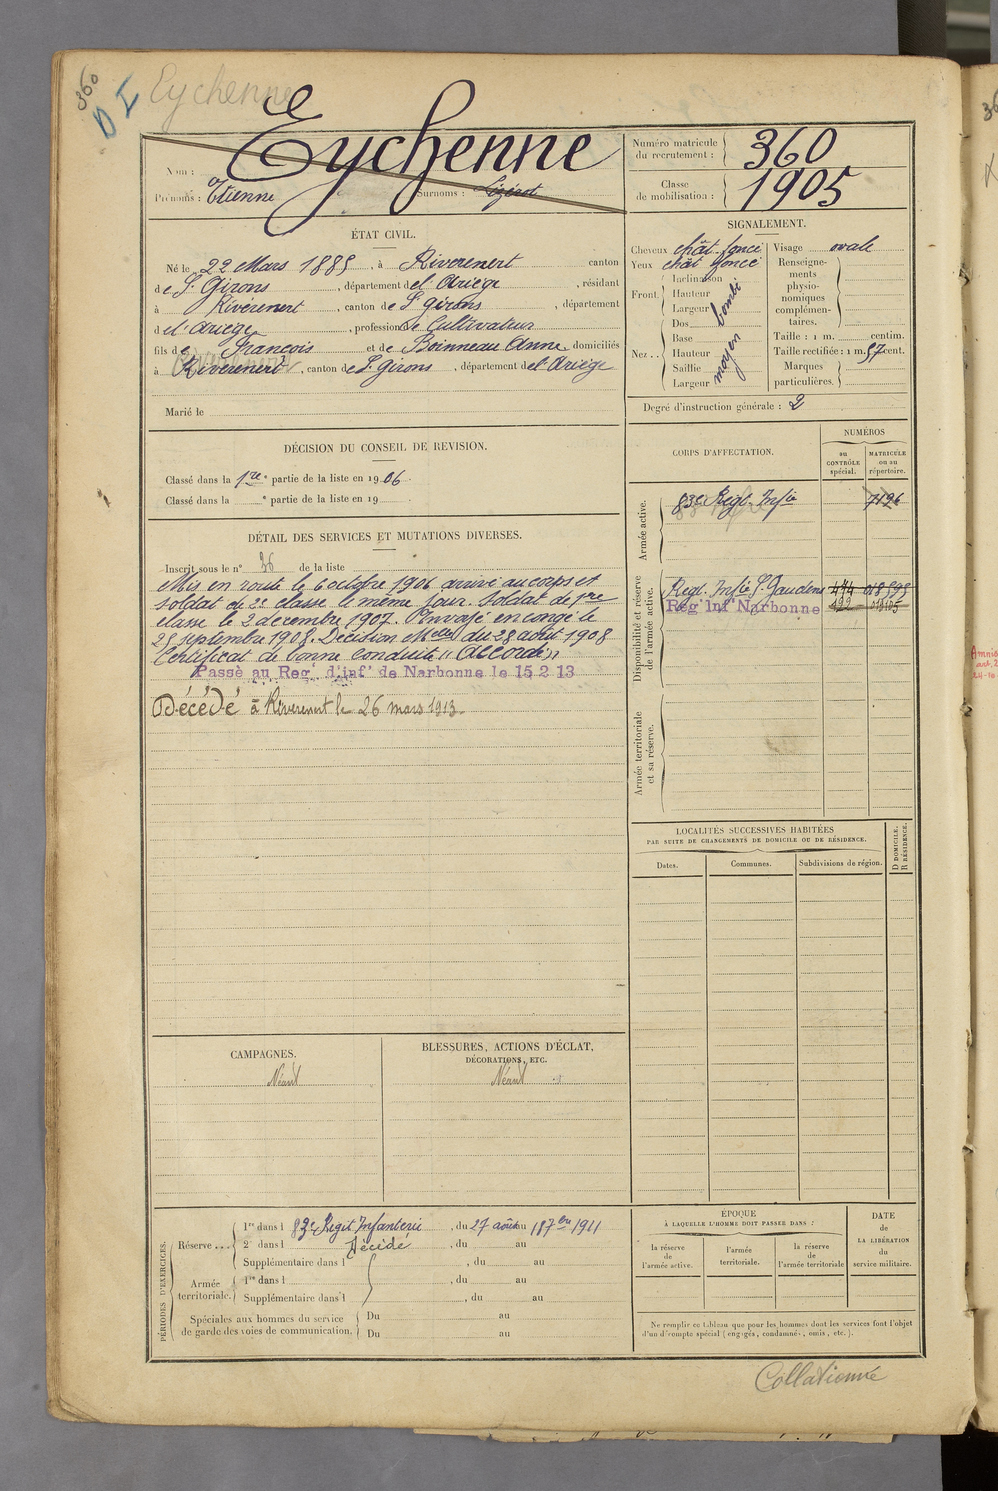 360
D I
Eychenne
Nom : Eychenne
Prénoms : Etienne Surnoms :
Numéro matricule du recrutement : 360
Classe de mobilisation : 1905
ÉTAT CIVIL.
Né le 22 Mars 1885, à Riverenert canton
de St Girons, département de l'Ariège, résidant
à Riverenert, canton de St Girons, département
de l'Ariège, profession de Cultivateur
fils de François et de Boinneau Anne, domiciliés
à Riverenert, canton de St Girons, département de l'Ariège
Marié le
SIGNALEMENT.
Cheveux chât foncé
Yeux chât foncé
Front. Inclinaison
Hauteur
Largeur bombé
Nez... Dos
Base
Hauteur moyen
Saillie
Largeur
Visage ovale
Renseignements physionomiques complémentaires.
Taille : 1 m. centim.
Taille rectifiée : 1 m. 57 cent.
Marques particulières.
Degré d'instruction générale : 2
DÉCISION DU CONSEIL DE REVISION.
Classé dans la 1re partie de la liste en 1906
Classé dans la e partie de la liste en 19
DÉTAIL DES SERVICES ET MUTATIONS DIVERSES.
Inscrit sous le n° 36 de la liste
Mis en route le 6 octobre 1906 arrivé au corps et
soldat de 2e classe le même jour. Soldat de 1re
classe le 2 décembre 1907. Envoyé en congé le
28 septembre 1908. Décision Melle du 28 août 1908
Certificat de bonne conduite "Accordé"
Passé au Reg. d'inft de Narbonne le 15 2 13
Décédé à Riverenert le 26 mars 1913.
CORPS D'AFFECTATION.
NUMÉROS
au CONTRÔLE spécial.
MATRICULE ou au répertoire.
Armée active.
83e Régt Infie 7196
Disponibilité et réserve de l'armée active.
Regt. Infie St Gaudens 474 018595
Reg' Inf' Narbonne
Armée territoriale et sa réserve.
LOCALITÉS SUCCESSIVES HABITÉES
PAR SUITE DE CHANGEMENTS DE DOMICILE OU DE RÉSIDENCE.
Dates.
Communes.
Subdivisions de région.
D DOMICILE.
R RÉSIDENCE.
CAMPAGNES.
Néant
BLESSURES, ACTIONS D'ÉCLAT,
DÉCORATIONS, ETC.
Néant
PÉRIODES D'EXERCICES.
Réserve ... 1re dans l 83e Régit Infanterie, du 27 août au 18 7bre 1911
2e dans l Décédé, du au
Supplémentaire dans l, du au
Armée territoriale. 1re dans l, du au
Supplémentaire dans l, du au
Spéciales aux hommes du service de garde des voies de communication. Du au
Du au
ÉPOQUE
À LAQUELLE L'HOMME DOIT PASSER DANS :
la réserve de l'armée active.
l'armée territoriale.
la réserve de l'armée territoriale
DATE
de
LA LIBÉRATION
du
service militaire.
Ne remplir ce tableau que pour les hommes dont les services font l'objet
d'un décompte spécial (engagés, condamnés, omis, etc.).
Collationné